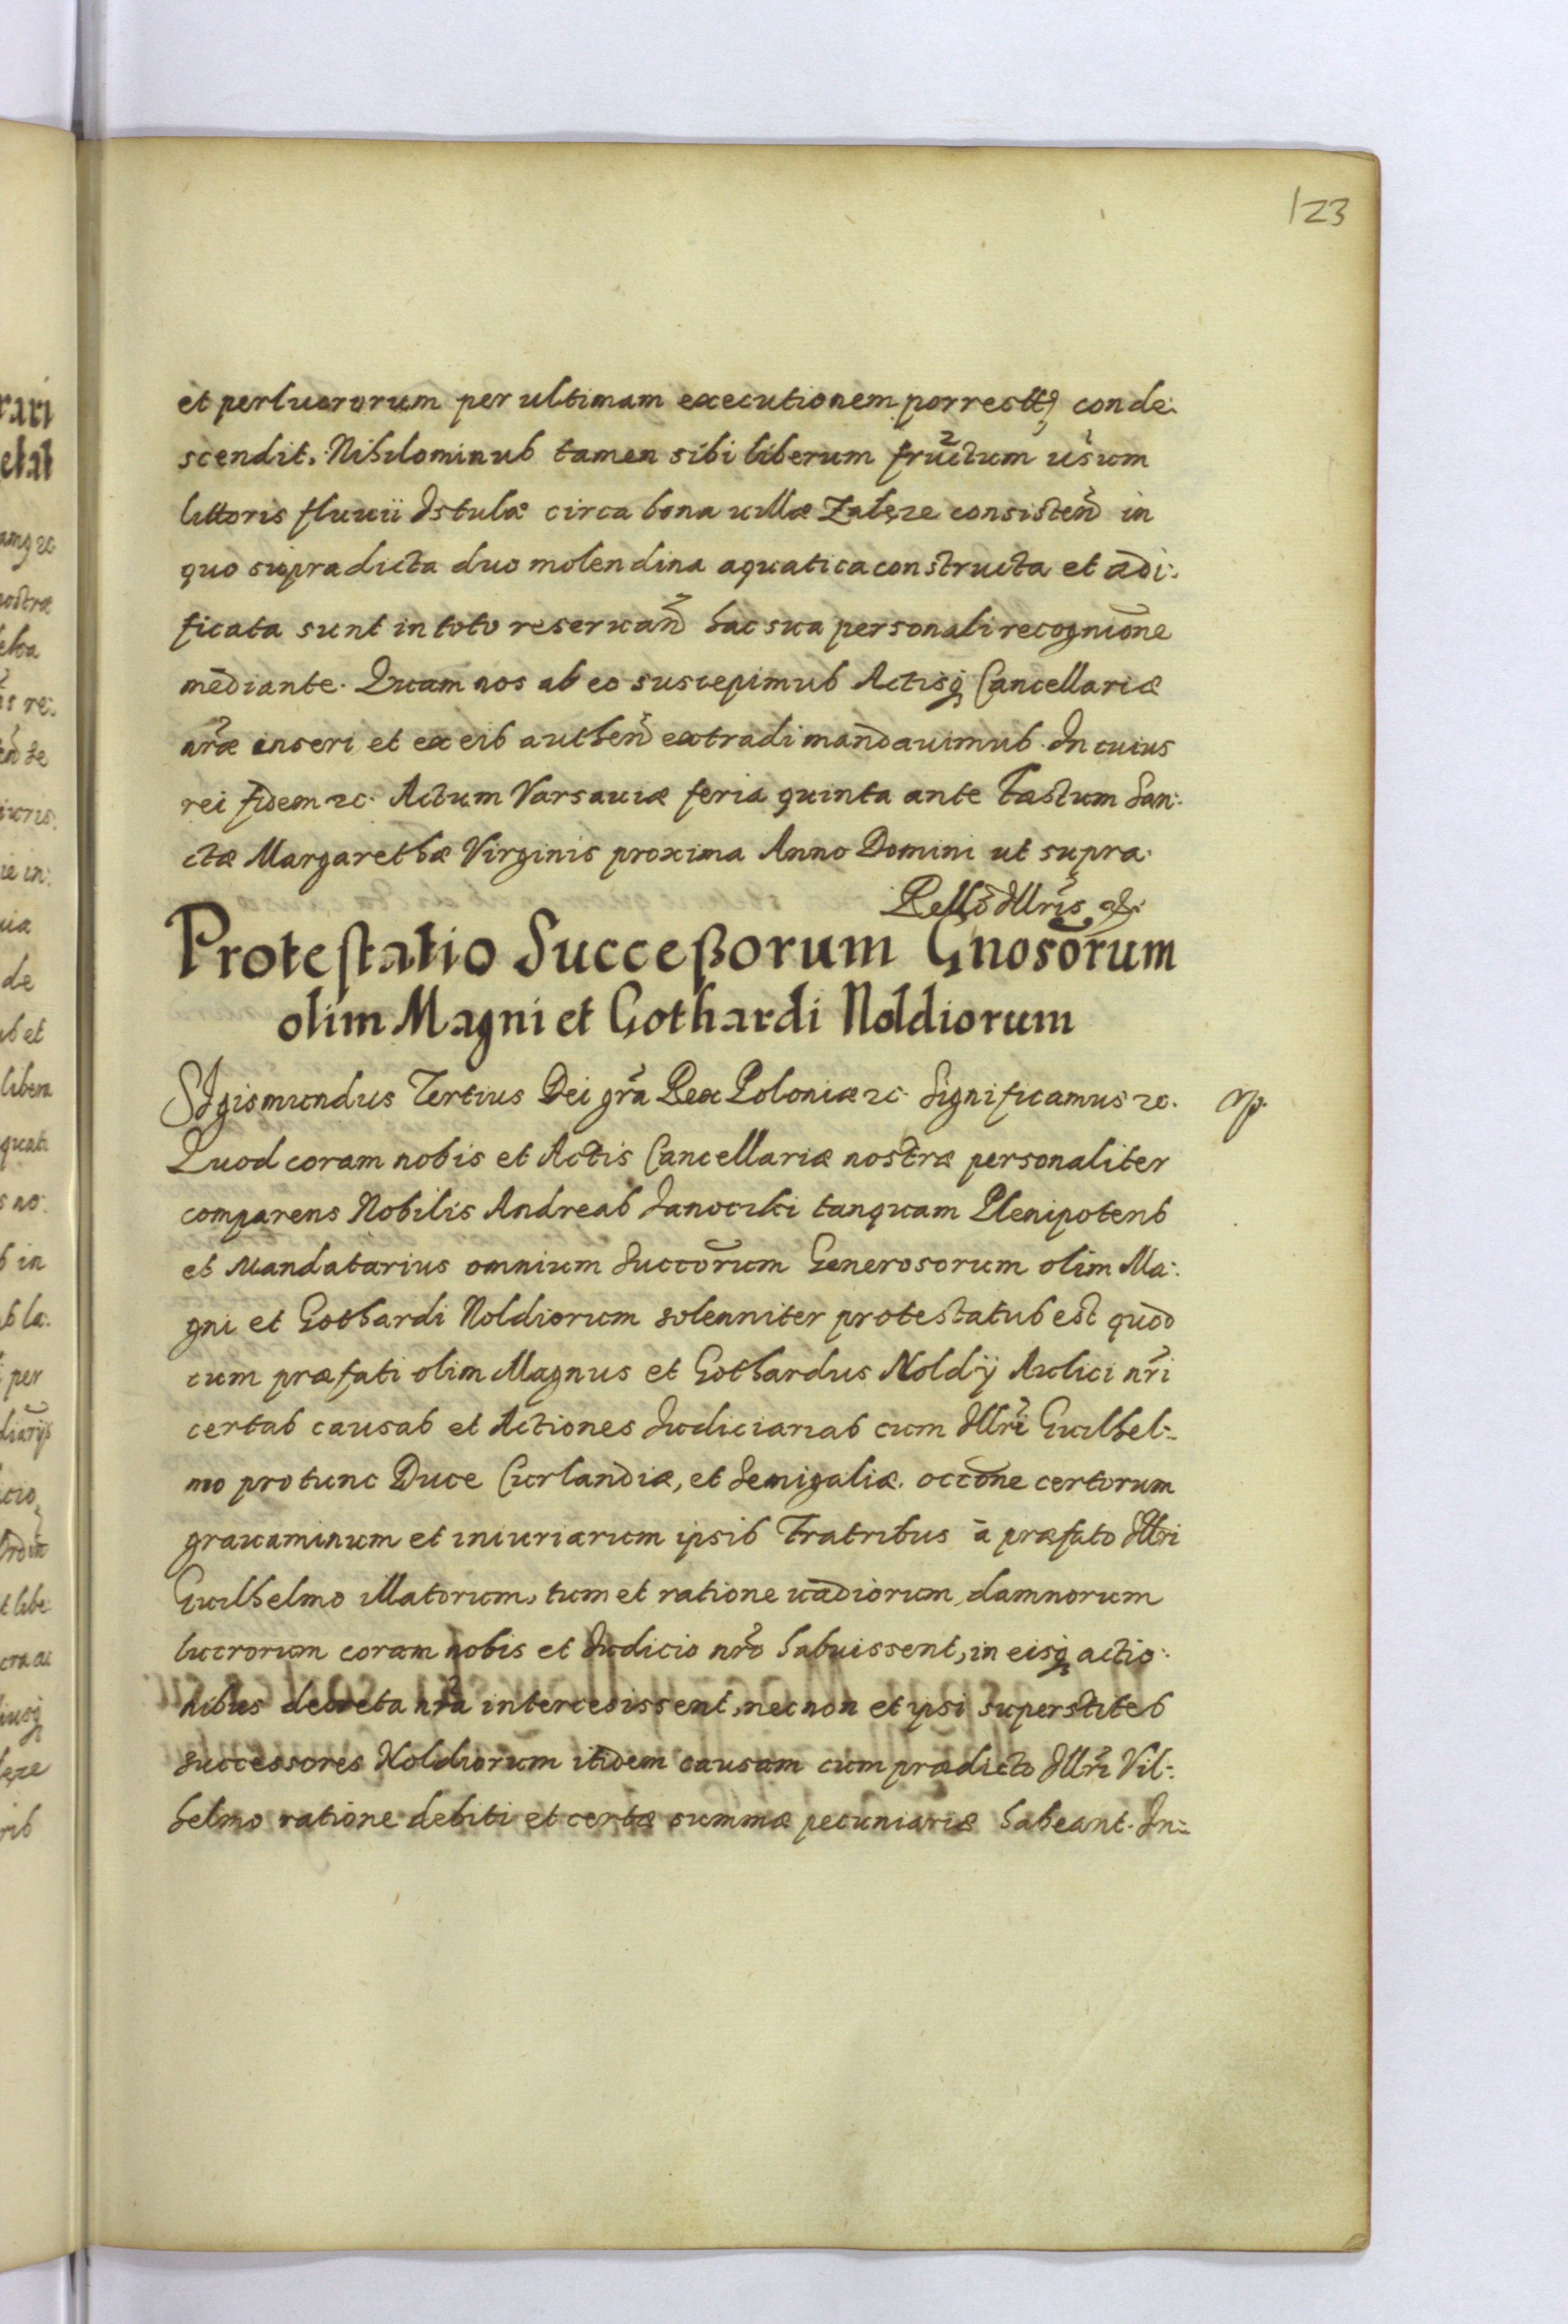 123
et perlucrorum per ultimam executionem porrectę conde:
scendit. Nihilominus tamen sibi liberum fructum usum
littoris fluuii Istulæ circa bona uillæ Zalęze consisten̄ in
quo supradicta duo molendina aquatica constructa et ædi:
ficata sunt in toto reseruan̄ hac sua personali recognic̄one
mediante. Quam nos ab eo suscepimus Actisq Cancellariæ
nr̄æ inseri et ex eis authen̄ extradi mandauimus. In cuius
rei fidem ꝛc. Actum Varsauiæ feria quinta ante Fæstum San:
ctæ Margarethæ Virginis proxima Anno Domini ut supra.
Protestatio Succeßorum Gnosōrum
olim Magni et Gothardi Noldiorum
Sigismundus Tertius Dei gr̄a Rex Poloniæ ꝛc. Significamus ꝛc.
Quod coram nobis et Actis Cancellariæ nostræ personaliter
comparens Nobilis Andreas Janociki tanquam Plenipotens
et Mandatarius omnium Succōrum Generosorum olim Ma:
gni et Gothardi Noldiorum solenniter protestatus est quod
cum præfati olim Magnus et Gothardus Noldij Aulici nr̄i
certas causas et Actiones Judiciarias cum Illr̄i Guilhel:
mo protunc Duce Curlandiæ, et Semigaliæ. occōne certorum
grauaminum et iniuriarum ipsis Fratribus à præfato Illri
Guilhelmo illatorum, tum et ratione uadiorum, damnorum
lucrorum coram nobis et Judicio nr̄o habuissent, in eisq actio:
nibus decreta nr̄a intercesissent, necnon et ipsi superstites
successores Noldiorum itidem causam cum prædicto Illr̄i Vil:
helmo ratione debiti et certæ summæ pecuniariæ habeant. In: